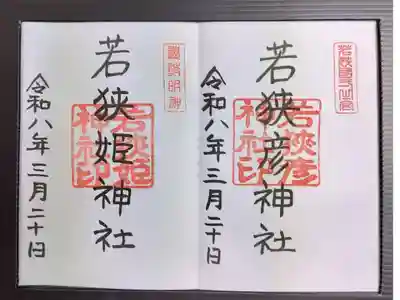 若狭彦神社
令和八年三月二十日
若狹彦
神社印
若狭姫神社
令和八年三月二十日
若狹姫
神社印